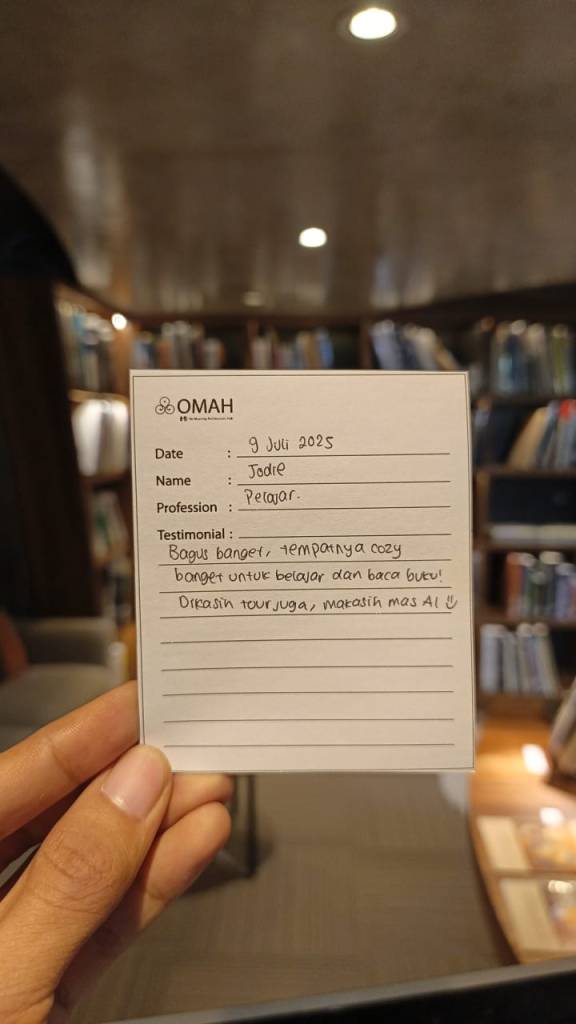 OMAH
Date : 9 Juli 2025
Name : Jodie
Profession : Pelajar.
Testimonial :
Bagus banget, tempatnya cozy
banget untuk belajar dan baca buku!
Dikasih tour juga, makasih mas Al